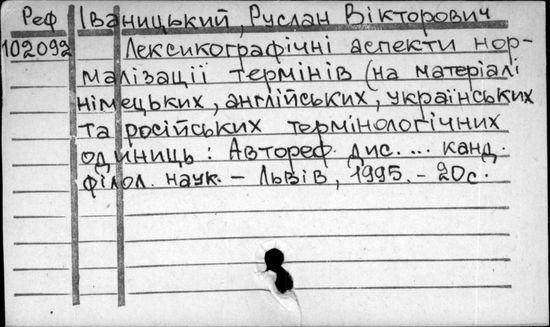 Реф Іваницький, Руслан Вікторович
102092 Лексикографічні аспекти нор-
малізації термінів (на матеріалі
німецьких, англійських, українських
та російських термінологічних
одиниць: Автореф. дис. ... канд.
філол. наук. – Львів, 1995. – 20с.